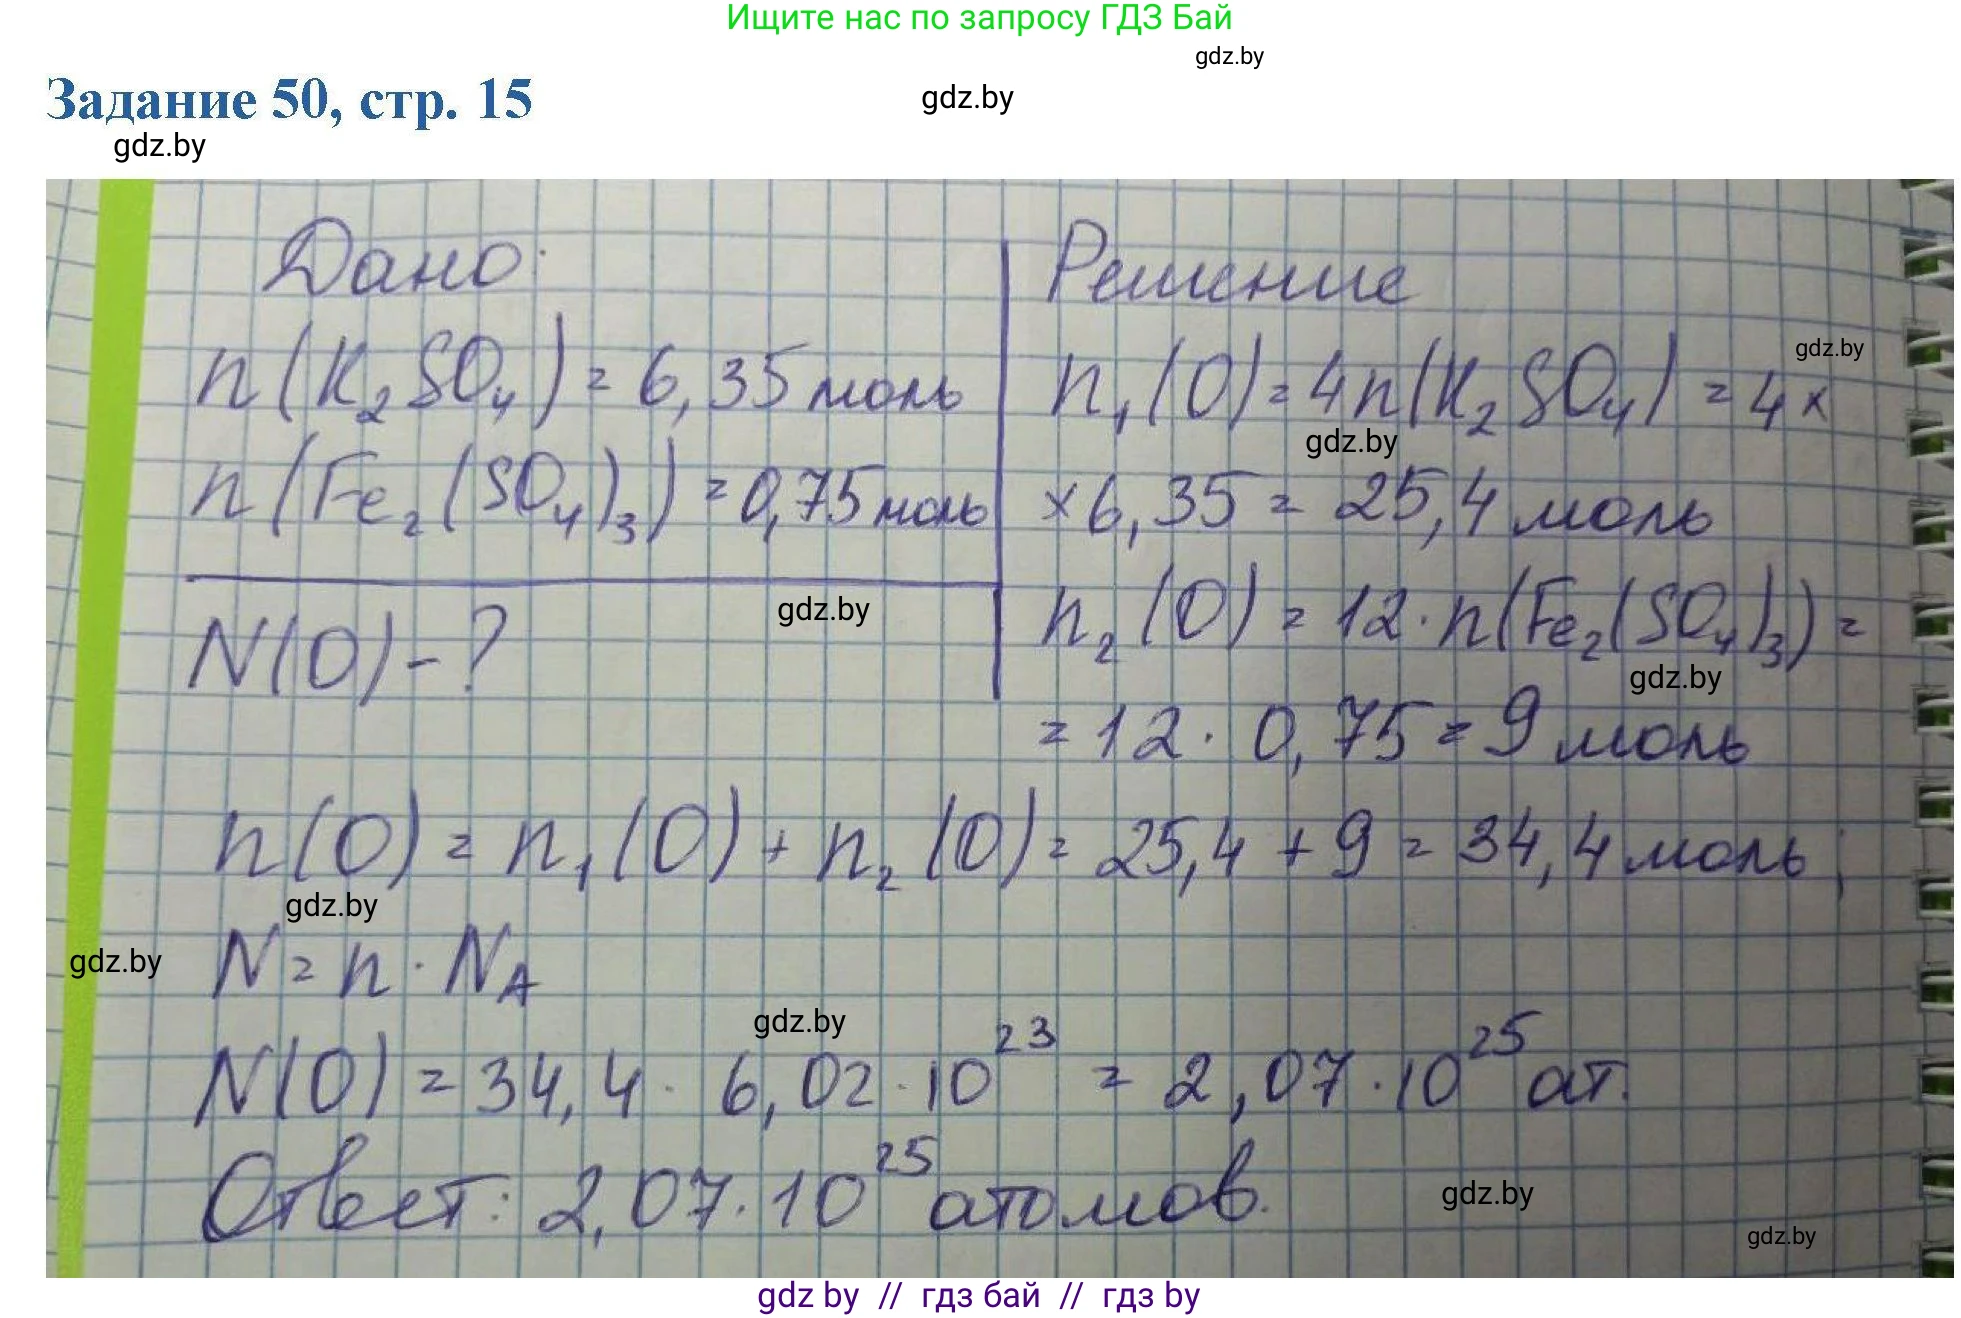 Ищите нас по запросу ГДЗ Бай
gdz.by
Задание 50, стр. 15
gdz.by
gdz.by
Дано:
n(K₂SO₄) = 6,35 моль
n(Fe₂(SO₄)₃) = 0,75 моль
N(O) - ?
gdz.by
Решение
gdz.by
n₁(O) = 4n(K₂SO₄) = 4 ×
gdz.by
× 6,35 = 25,4 моль
n₂(O) = 12 · n(Fe₂(SO₄)₃) =
gdz.by
= 12 · 0,75 = 9 моль
n(O) = n₁(O) + n₂(O) = 25,4 + 9 = 34,4 моль;
gdz.by
gdz.by
N = n · N_A
gdz.by
N(O) = 34,4 · 6,02 · 10²³ = 2,07 · 10²⁵ ат.
Ответ: 2,07 · 10²⁵ атомов.
gdz.by
gdz.by
gdz by // гдз бай // гдз by